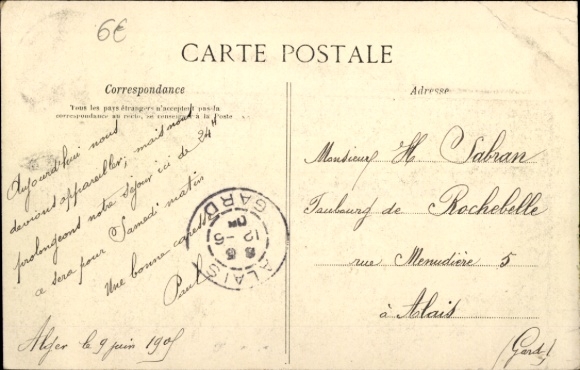 6€
CARTE POSTALE
Correspondance
Tous les pays étrangers n'acceptent pas la
correspondance au recto, se renseigner à la Poste
Aujourd'hui nous
devions appareiller, mais nous
prolongeons notre séjour ici de 24 H
ce sera pour Samedi matin
Une bonne caresse
Paul
Alger le 9 juin 1905
ALAIS
GARD
Adresse
Monsieur H Sabran
Faubourg de Rochebelle
rue Menudière 5
à Alais
(Gard)